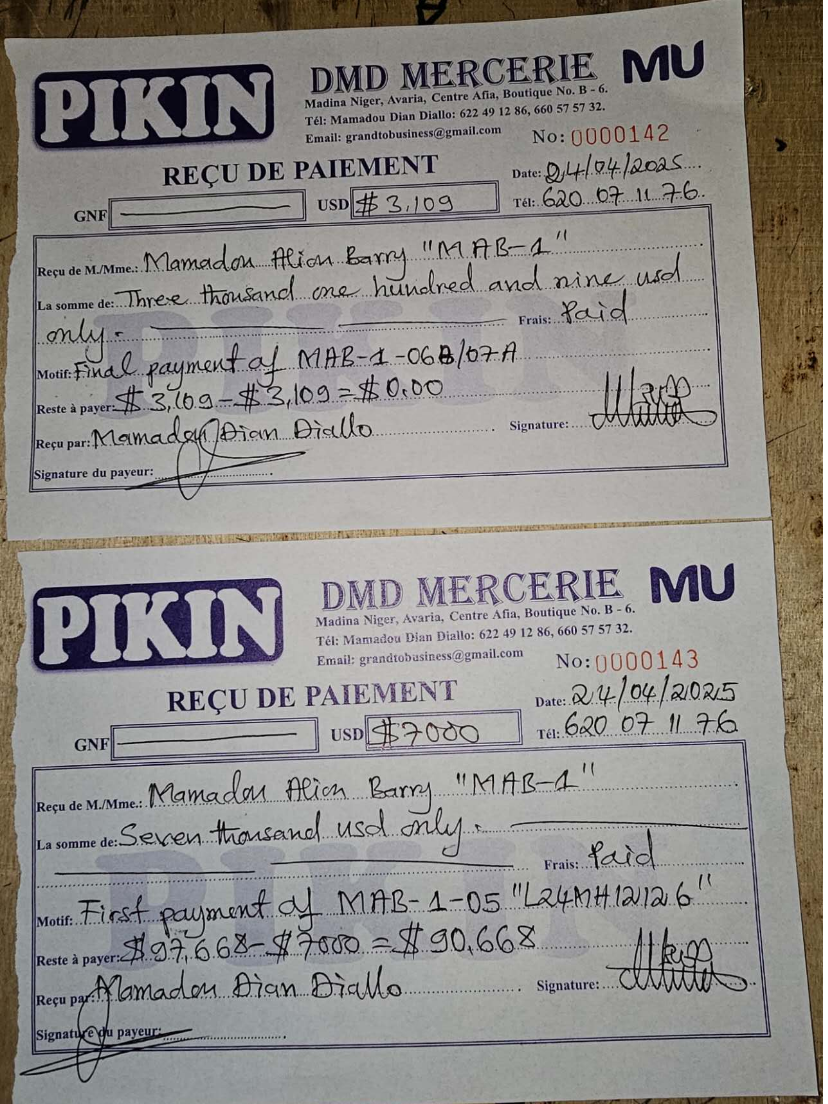 PIKIN
DMD MERCERIE
MU
Madina Niger, Avaria, Centre Afia, Boutique No. B - 6.
Tél: Mamadou Dian Diallo: 622 49 12 86, 660 57 57 32.
Email: grandtobusiness@gmail.com
No: 0000142
REÇU DE PAIEMENT
Date: 24/04/2025
GNF
USD $ 3,109
Tél: 620 07 11 76
Reçu de M./Mme.: Mamadou Aliou Barry "MAB-1"
La somme de: Three thousand one hundred and nine usd
only.
Frais: Paid
Motif: Final payment of MAB-1-06B/07-A
Reste à payer: $3,109-$3,109=$0.00
Reçu par: Mamadou Dian Diallo
Signature:
Signature du payeur:
PIKIN
DMD MERCERIE
MU
Madina Niger, Avaria, Centre Afia, Boutique No. B - 6.
Tél: Mamadou Dian Diallo: 622 49 12 86, 660 57 57 32.
Email: grandtobusiness@gmail.com
No: 0000143
REÇU DE PAIEMENT
Date: 24/04/2025
GNF
USD $7000
Tél: 620 07 11 76
Reçu de M./Mme.: Mamadou Aliou Barry "MAB-1"
La somme de: Seven thousand usd only.
Frais: Paid
Motif: First payment of MAB-1-05 "L24MH12126"
Reste à payer: $97,668-$7000=$90,668
Reçu par: Mamadou Dian Diallo
Signature:
Signature du payeur: